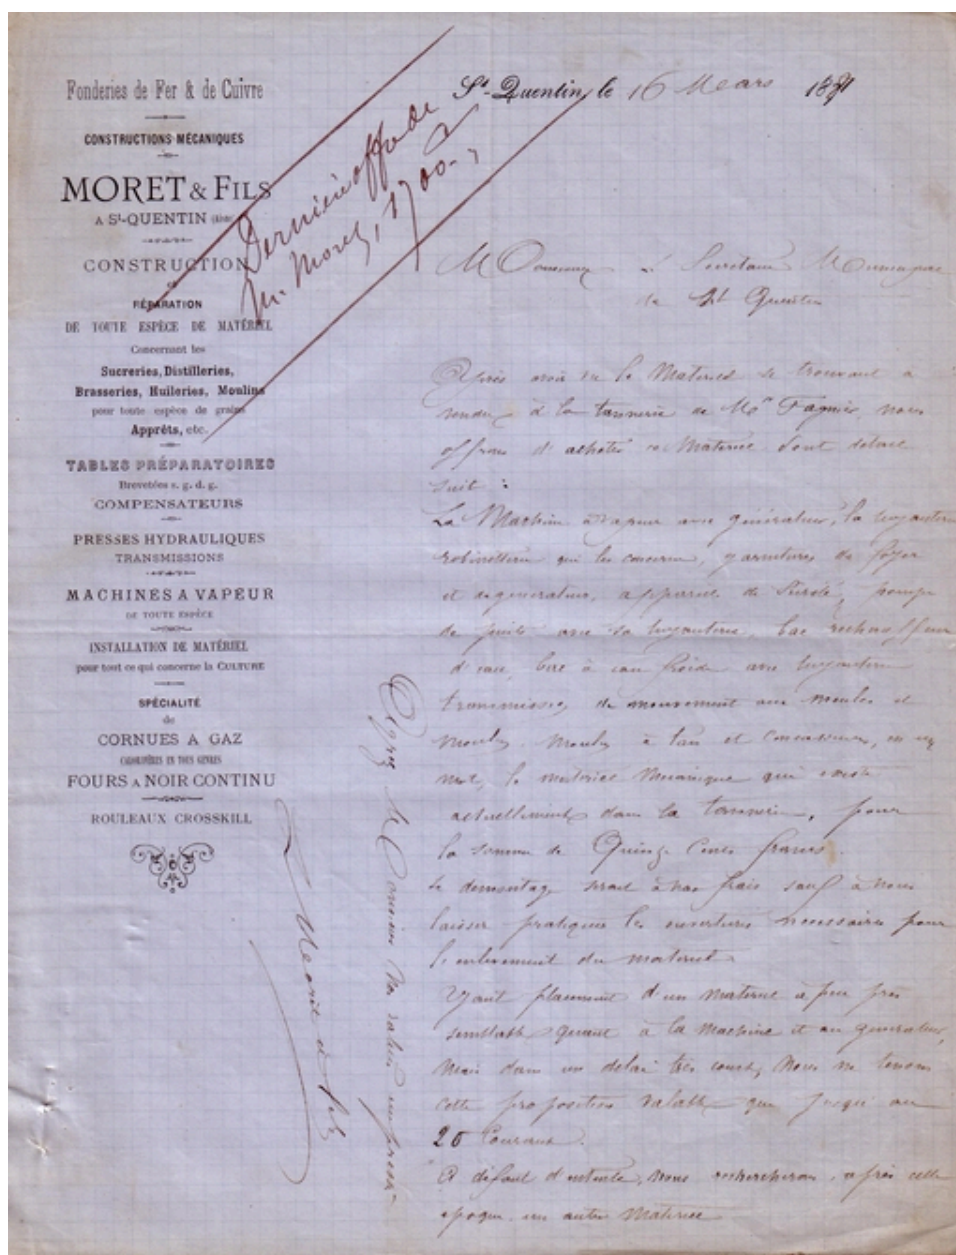 Fonderies de Fer & de Cuivre
CONSTRUCTIONS MÉCANIQUES
MORET & FILS
A St-QUENTIN (Aisne)
CONSTRUCTION
RÉPARATION
DE TOUTE ESPÈCE DE MATÉRIEL
Concernant les
Sucreries, Distilleries,
Brasseries, Huileries, Moulins
pour toute espèce de grains
Apprêts, etc.
TABLES PRÉPARATOIRES
Brevetées s. g. d. g.
COMPENSATEURS
PRESSES HYDRAULIQUES
TRANSMISSIONS
MACHINES A VAPEUR
DE TOUTE ESPÈCE
INSTALLATION DE MATÉRIEL
pour tout ce qui concerne la CULTURE
SPÉCIALITÉ
de
CORNUES A GAZ
CALORIFÈRES EN TOUS GENRES
FOURS A NOIR CONTINU
ROULEAUX CROSSKILL
Dernière offre de
M. Moret, 1700
St-Quentin, le 16 Mars
Monsieur Secrétaire
de St Quentin
Après avoir vu le Matériel se trouvant à
vendre à la tannerie de Mr Fagnier, nous
offrons d'acheter ce Matériel dont détail
suit :
La Machine à vapeur avec générateur, la tuyauterie
robinetterie qui les concerne, garnitures de foyer
et de générateur, appareils de Sureté, pompe
de puits avec sa tuyauterie, bac réchauffeur
d'eau, bac à eau froide avec tuyauterie
transmission de mouvement aux meules et
moulin, Moulin à tan et Concasseur, en un
mot, le matériel Mécanique qui existe
actuellement dans la tannerie, pour
la somme de Quinze Cents francs.
Le démontage serait à nos frais sauf à nous
laisser pratiquer les ouvertures nécessaires pour
l'enlèvement du matériel
Ayant placement d'un Matériel à peu près
semblable quant à la machine et au générateur,
mais dans un délai très court, Nous ne tenons
cette proposition valable que jusqu'au
20 Courant.
A défaut d'entente, nous rechercherons, après cette
époque un autre Matériel
Agréez Monsieur Nos salut empressés
Moret & fils